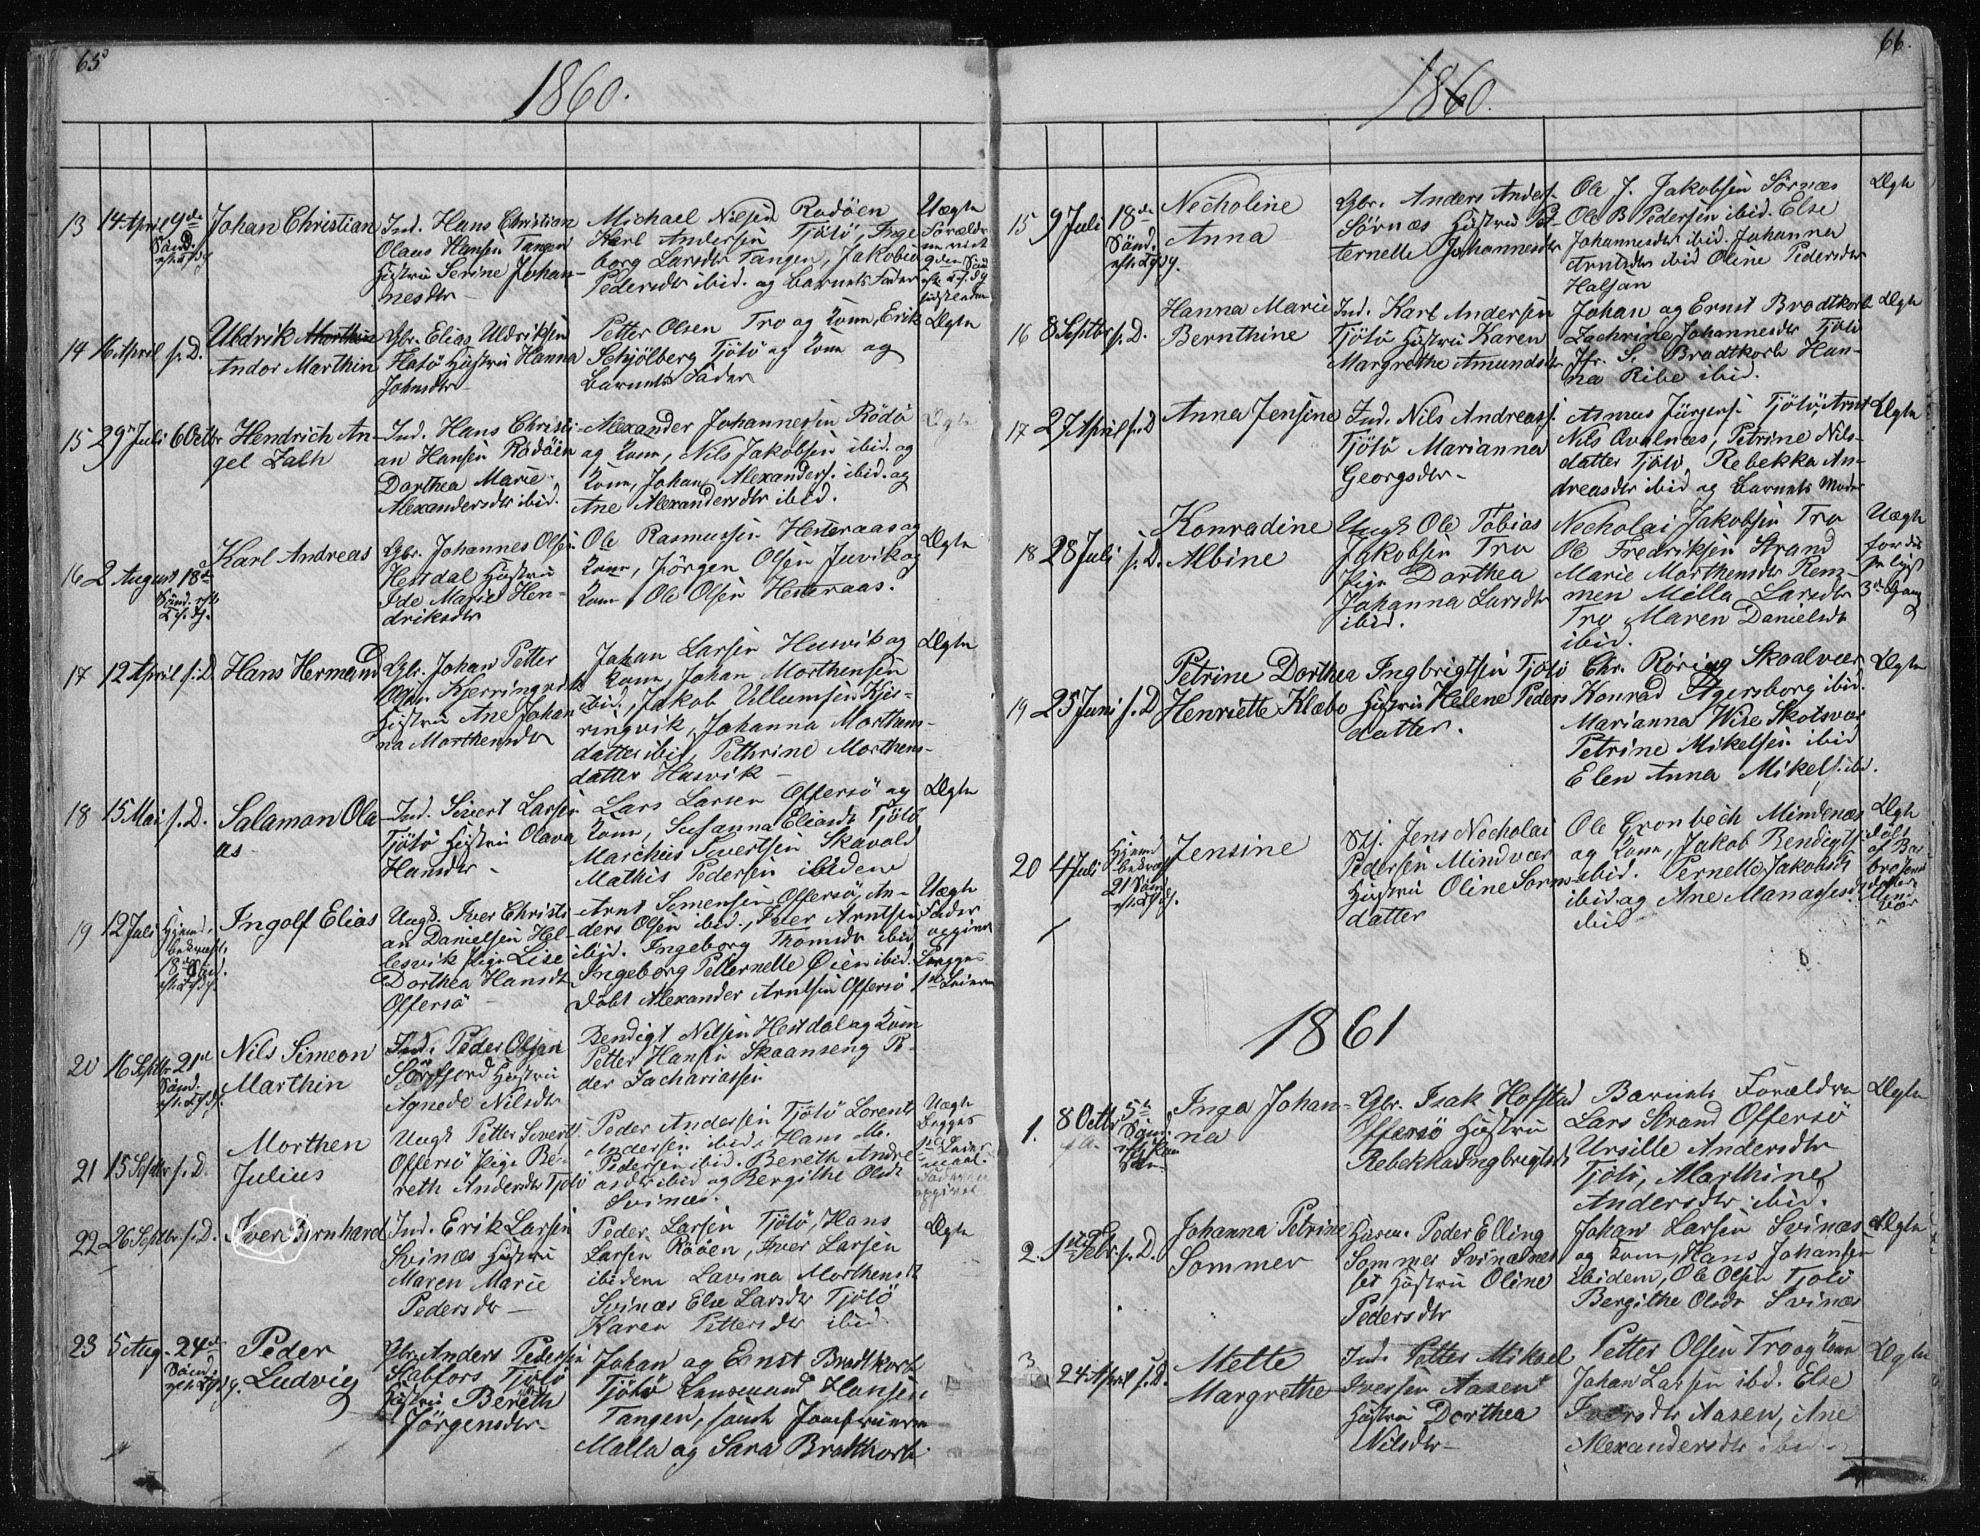 65
1860.
13 14 April 9de Sönd. eft. Tr. Johan Christian
Ind. Hans Christian
Olaus Hansen Tangen
Hustru Serine Johan-
nesdtr
Michael Nilsen Rodöen
Karl Andersen Tjötö, Inge
borg Larsdtr Tangen, Jakobin
Pedersdtr ibid. og Barnets Fader
Uægte
14 16 April s. D. Uldrik Morthin
Andor Marthin
Gbr. Elias Uldriksen
Flatö Hustru Hanna
Johnsdtr
Petter Olsen Tro og Kone, Erik
Schjölberg Tjötö og Kone og
Barnets Fader
Ægte
15 29 Juli 6 Octbr Hendrich An-
gel Zalh
Ind. Hans Christi-
an Hansen Rödöen
Dorthea Marie
Alexandersdtr ibid.
Alexander Johannessen Rödö
og Kone, Nils Jakobsen ibid. og
Kone, Johan Alexanders. ibid. og
Ane Alexandersdtr ibid.
Ægte
16 2 August 18de Sönd. eft. Karl Andreas
Gbr. Johannes Olsen
Hestdal Hustru
Ide Marie Hen-
driksdtr
Ole Rasmussen Hesteraas og
Kone, Jörgen Olsen Juvik og
Kone, Ole Olsen Hesteraas.
Ægte
17 12 April s. D. Hans Hermand
Gbr. Johan Petter
Olsen Kjerringvik
Hustru Ane Johan
na Morthensdtr
Johan Larsen Husvik og
Kone, Johan Morthensen
ibid., Jakob Villumsen Kjer-
ringvik, Johanna Morthens-
datter ibid, Pethrine Morthens-
datter Husvik
Ægte
18 15 Mai s. D. Salamon Ola-
us
Ind. Sivert Larsen
Tjötö Hustru Olava
Hansdtr
Lars Larsen Offersö og
Kone, Susanna Eliasdtr Tjötö
Marchus Sivertsen Skavold
Mathis Pedersen ibidem
Ægte
19 12 Juli Hjemd. Ingolf Elias
Ungk. Iver Christi
an Danielsen Hel-
lesvik Pige Lise
Dorthea Hansdtr
Offersö
Arnt Simensen Offersö, An-
ders Olsen ibid., Peter Arntsen
ibid. Ingeborg Thomsdtr ibid
Ingeborg Pellernelle Öien ibid.
Döbt Alexander Arntsen Offersö
Uægte
Fader
opgivet
Begges
1ste Leierm
20 16 Septbr 21de Sönd. Nils Simeon
Marthin
Ind. Peder Olsen
Sörfjord Hustru
Agnede Nilsdtr
Bendigt Nilsen Hestdal og Kone
Petter Hansen Skaanseng Pe-
der Zachariassen
21 15 Septbr s. D. Morthen
Julius
Ungk Petter Sivert
Offersö Pige Be-
reth Andersdtr Tjötö
Peder Andersen Tjötö Lorents
Andersen ibid., Hans M.
Pedersen ibid. Bereth Andre
asdtr ibid og Bergithe Olsdtr
Svinæs.
Uægte
Begges
22 26 Septbr s. D. Iver Bernhard
Ind. Erik Larsen
Svinæs Hustru
Maren Marie
Pedersdtr
Peder Larsen Tjötö, Hans
Larsen Roöen, Iver Larsen
ibidem Lavina Morthensdtr
Svinæs Else Larsdtr Tjötö
Karen Pettersdtr ibid
Ægte
23 5 Aug. 24de Sönd. Peder
Ludvig
Gbr. Anders Pedersen
Stabfors Tjötö
Hustru Bereth
Jörgensdtr
Johan og Ernst Bradtkorb
Tjötö Lensmand Hansen
Tangen, samt Jomfruerne
Malla og Sara Bratkorb.
66.
1860.
15 9 Juli 18de Sönd. Necholine
Anna
Gbr. Anders Anders.
Sörnæs Hustru P-
ternelle Johannesdtr
Ole J. Jakobsen Sörnæs
Ole B Pedersen ibid. Else
Johannesdtr ibid. Johanna
Arntsdtr ibid Oline Pedersdtr
Halsan
Ægte
16 8 Septbr s. D. Hanna Marie
Bernthine
Ind. Karl Andersen
Tjötö Hustru Karen
Margrethe Amundsdtr
Johan og Ernst Brodtkorb
Zachrine Johannesdtr Tjötö
Jfr. S. Brodtkorb Han-
na Ribe ibid.
Ægte
17 27 April s. D. Anna Jensine
Ind. Nils Andreass.
Tjötö Marianna
Georgsdtr
Asmus Jürgens. Tjötö, Arnt
Nils Qvalnæs, Petrine Nils-
datter Tjötö Rebekka An-
dreasdtr ibid og Barnets Moder
Ægte
18 28 Juli s. D. Konradine
Albine
Ungk Ole Tobias
Jakobsen Tro
Pige Dorthea
Johanna Larsdtr
ibid.
Necholai Jakobsen Tro
Ole Fredriksen Strand
Marie Morthensdtr Rem-
men Malla Larsdtr
Tro Maren Danielsdtr
ibid.
Uægte
19 25 Juni s. D. Petrine Dorthea
Henriette Klæbo
Ingbrigtsen Tjötö
Hustru Helene Peders
datter.
Chr. Röring Skoalvær
Konrad Agersborg ibid.
Marianna Wise Skotsvær
Petrine Mikelsen ibid
Elen Anna Mikels. ibid.
Ægte
20 4 Juli Hjemd. 21 Sönd. Jensine
Stj. Jens Necholai
Pedersen Mindvær
Hustru Oline Sorns-
datter
Ole Gronbech Mindenæs
og Kone, Jakob Bendigts.
ibid. Pernelle Jakobsdtr
ibid og Ane Manasses.
ibid
Ægte
1861
1. 8 Octbr 5te Sönd. Inga Johan-
na
Gbr. Isak Hofstad
Offersö Hustru
Rebekka Ingbrigtsdtr
Barnets Forældre
Lars Strand Offersö
Ursille Andersdtr
Tjötö, Marthine
Andersdtr ibid.
Ægte
2. 1ste Febr. s. D. Johanna Petrine
Sommer
Husm. Peder Elling
Sommer Svinæsnes
set Hustru Oline
Pedersdtr
Johan Larsen Svinæs
og Kone, Hans Johansen
ibidem, Ole Olsen Tjötö
Bergithe Olsdtr Svinæs
Ægte
3 24 April s. D. Mette
Margrethe
Ind. Petter Mikael
Iversen Aasen
Hustru Dorthea
Nilsdtr
Petter Olsen Tro og Kone
Johan Larsen ibd. Else
Iversdtr Aasen, Ane
Alexandersdtr ibid
Ægte